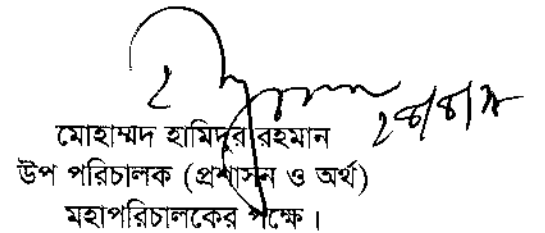 মোহাম্মদ হামিদুর রহমান
উপ পরিচালক (প্রশাসন ও অর্থ)
মহাপরিচালকের পক্ষে।